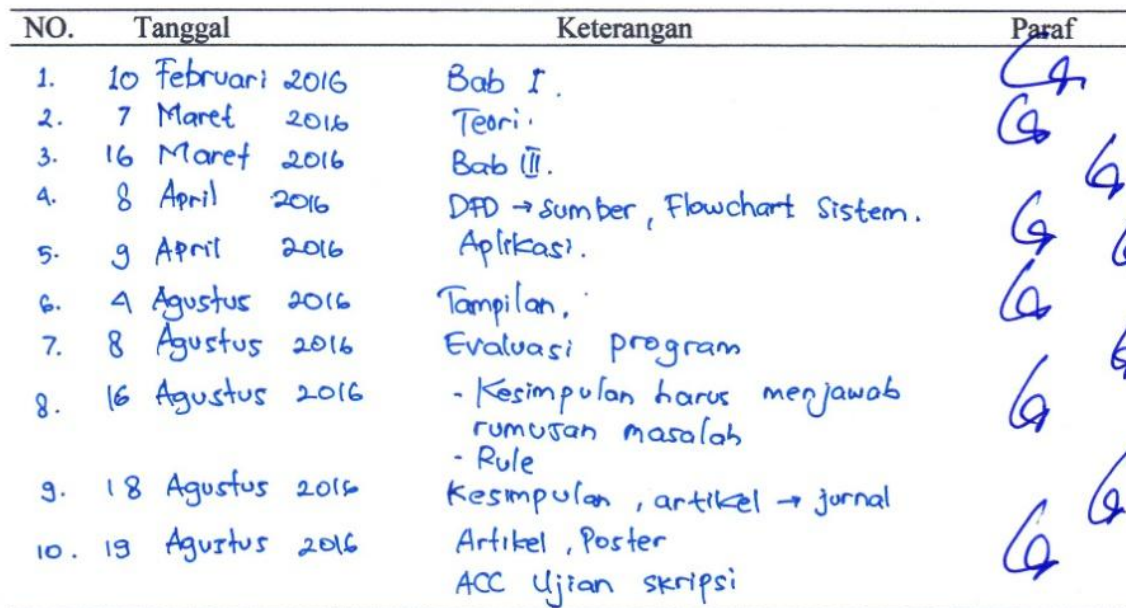 NO. Tanggal Keterangan Paraf
1. 10 Februari 2016 Bab I.
2. 7 Maret 2016 Teori.
3. 16 Maret 2016 Bab III.
4. 8 April 2016 DFD → sumber, Flowchart Sistem.
5. 9 April 2016 Aplikasi.
6. 4 Agustus 2016 Tampilan.
7. 8 Agustus 2016 Evaluasi program
8. 16 Agustus 2016 - Kesimpulan harus menjawab
rumusan masalah
- Rule
9. 18 Agustus 2016 Kesimpulan, artikel → jurnal
10. 19 Agustus 2016 Artikel, Poster
ACC Ujian skripsi